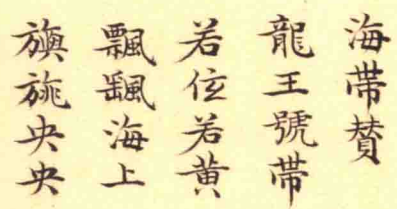 海帶贊
龍王號帶
若伭若黃
飄颻海上
旟旐央央